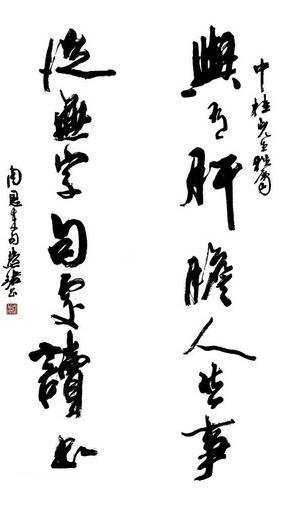 中桂先生雅屬
與有肝膽人共事
從無字句處讀書
周恩来句